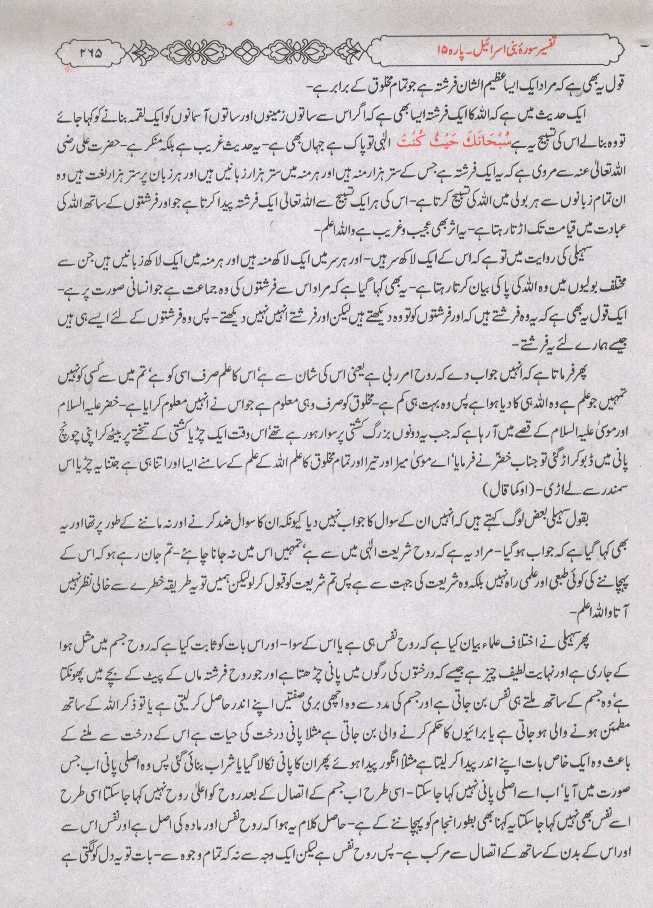 تفسیر سورۂ بنی اسرائیل۔ پارہ ۱۵
۲۶۵
قول یہ بھی ہے کہ مراد ایک ایسا عظیم الشان فرشتہ ہے جو تمام مخلوق کے برابر ہے۔
ایک حدیث میں ہے کہ اللہ کا ایک فرشتہ ایسا بھی ہے کہ اگر اس سے ساتوں زمینوں اور ساتوں آسمانوں کو ایک لقمہ بنانے کو کہا جائے
تو وہ بنالے اس کی تسبیح یہ ہے سُبْحَانَكَ حَيْثُ كُنْتَ الٰہی تو پاک ہے جہاں بھی ہے۔ یہ حدیث غریب ہے بلکہ منکر ہے۔ حضرت علی رضی
اللہ تعالیٰ عنہ سے مروی ہے کہ یہ ایک فرشتہ ہے جس کے ستر ہزار منہ ہیں اور ہر منہ میں ستر ہزار زبانیں ہیں اور ہر زبان پر ستر ہزار لغت ہیں وہ
ان تمام زبانوں سے ہر بولی میں اللہ کی تسبیح کرتا ہے۔ اس کی ہر ایک تسبیح سے اللہ تعالیٰ ایک فرشتہ پیدا کرتا ہے جو اور فرشتوں کے ساتھ اللہ کی
عبادت میں قیامت تک اڑتا رہتا ہے۔ یہ اثر بھی عجیب و غریب ہے واللہ اعلم۔
سہیلی کی روایت میں تو ہے کہ اس کے ایک لاکھ سر ہیں۔ اور ہر سر میں ایک لاکھ منہ ہیں اور ہر منہ میں ایک لاکھ زبانیں ہیں جن سے
مختلف بولیوں میں وہ اللہ کی پاکی بیان کرتا رہتا ہے۔ یہ بھی کہا گیا ہے کہ مراد اس سے فرشتوں کی وہ جماعت ہے جو انسانی صورت پر ہے۔
ایک قول یہ بھی ہے کہ یہ وہ فرشتے ہیں کہ اور فرشتوں کو تو وہ دیکھتے ہیں لیکن اور فرشتے انہیں نہیں دیکھتے۔ پس وہ فرشتوں کے لئے ایسے ہی ہیں
جیسے ہمارے لئے یہ فرشتے۔
پھر فرماتا ہے کہ انہیں جواب دے کہ روح امر ربی ہے یعنی اس کی شان سے ہے' اس کا علم صرف اسی کو ہے' تم میں سے کسی کو نہیں
تمہیں جو علم ہے وہ اللہ ہی کا دیا ہوا ہے پس وہ بہت ہی کم ہے۔ مخلوق کو صرف وہی معلوم ہے جو اس نے انہیں معلوم کرایا ہے۔ خضر علیہ السلام
اور موسیٰ علیہ السلام کے قصے میں آ رہا ہے کہ جب یہ دونوں بزرگ کشتی پر سوار ہو رہے تھے' اس وقت ایک چڑیا کشتی کے تختے پر بیٹھ کر اپنی چونچ
پانی میں ڈبو کر اڑ گئی تو جناب خضرؑ نے فرمایا' اے موسیٰ میرا اور تیرا اور تمام مخلوق کا علم اللہ کے علم کے سامنے ایسا اور اتنا ہی ہے جتنا یہ چڑیا اس
سمندر سے لے اڑی۔ (او کما قال)
بقول سہیلی بعض لوگ کہتے ہیں کہ انہیں ان کے سوال کا جواب نہیں دیا کیونکہ ان کا سوال ضد کرنے اور نہ ماننے کے طور پر تھا اور یہ
بھی کہا گیا ہے کہ جواب ہو گیا۔ مراد یہ ہے کہ روح شریعت الٰہی میں سے ہے' تمہیں اس میں نہ جانا چاہئے۔ تم جان رہے ہو کہ اس کے
پہچاننے کی کوئی طبعی اور علمی راہ نہیں بلکہ وہ شریعت کی جہت سے ہے پس تم شریعت کو قبول کرلو لیکن ہمیں تو یہ طریقہ خطرے سے خالی نظر نہیں
آتا واللہ اعلم۔
پھر سہیلی نے اختلاف علماء بیان کیا ہے کہ روح نفس ہی ہے یا اس کے سوا۔ اور اس بات کو ثابت کیا ہے کہ روح جسم میں مثل ہوا
کے جاری ہے اور نہایت لطیف چیز ہے جیسے کہ درختوں کی رگوں میں پانی چڑھتا ہے اور جو روح فرشتہ ماں کے پیٹ کے بچے میں پھونکتا
ہے' وہ جسم کے ساتھ ملتے ہی نفس بن جاتی ہے اور جسم کی مدد سے وہ اچھی بری صفتیں اپنے اندر حاصل کر لیتی ہے یا تو ذکر اللہ کے ساتھ
مطمئن ہونے والی ہو جاتی ہے یا برائیوں کا حکم کرنے والی بن جاتی ہے مثلا پانی درخت کی حیات ہے اس کے درخت سے ملنے کے
باعث وہ ایک خاص بات اپنے اندر پیدا کر لیتا ہے مثلاً انگور پیدا ہوئے پھر ان کا پانی نکالا گیا یا شراب بنائی گئی پس وہ اصلی پانی اب جس
صورت میں آیا' اب اسے اصلی پانی نہیں کہا جا سکتا۔ اسی طرح اب جسم کے اتصال کے بعد روح کو اعلیٰ روح نہیں کہا جا سکتا اسی طرح
اسے نفس بھی نہیں کہا جا سکتا یہ کہنا بھی بطور انجام کو پہچاننے کے ہے۔ حاصل کلام یہ ہوا کہ روح نفس اور مادہ کی اصل ہے اور نفس اس سے
اور اس کے بدن کے ساتھ کے اتصال سے مرکب ہے۔ پس روح نفس ہے لیکن ایک وجہ سے نہ کہ تمام وجوہ سے۔ بات تو یہ دل کو لگتی ہے